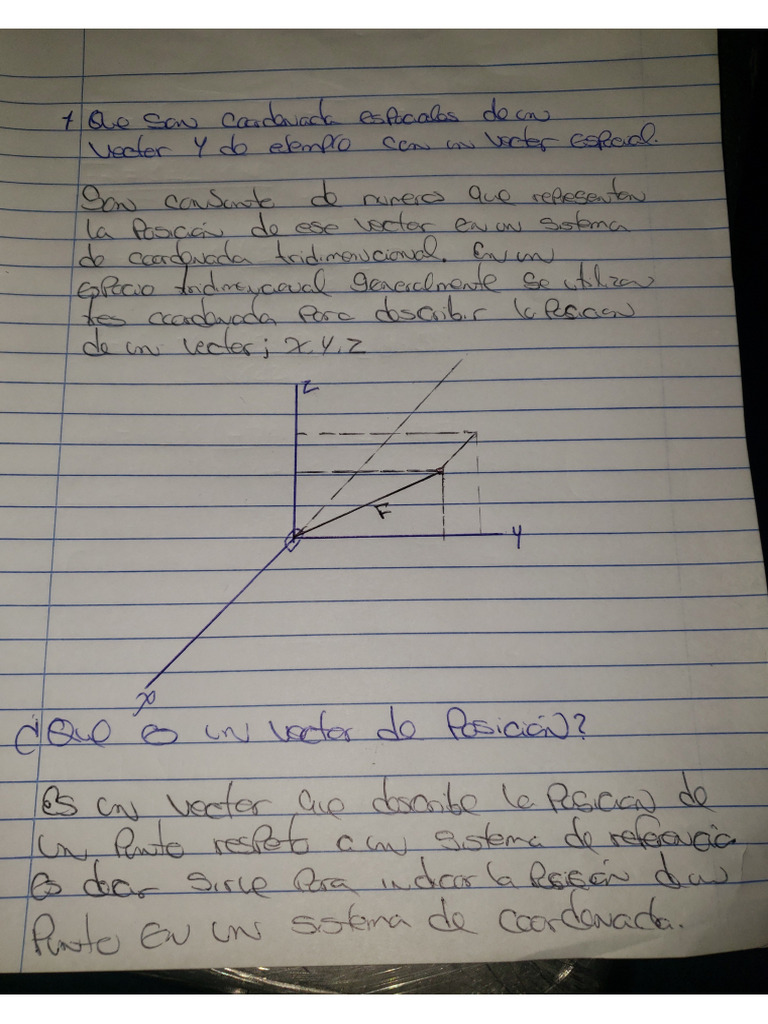 1 Que son coordenada espaciales de un
vector y de ejempro con un vector espacial.
Son consunto de numero que representen
la posición de ese vector en un sistema
de coordenada tridimencional. En un
espacio tridimencional generalmente se utilizan
tes coordenada para describir la posicion
de un vector; x, y, z
z
F
y
x
¿Que es un vector de posición?
es un vector que describe la posición de
un punto respeto a un sistema de referencia
es decir sirve para indicar la posición d un
punto en un sistema de coordenada.